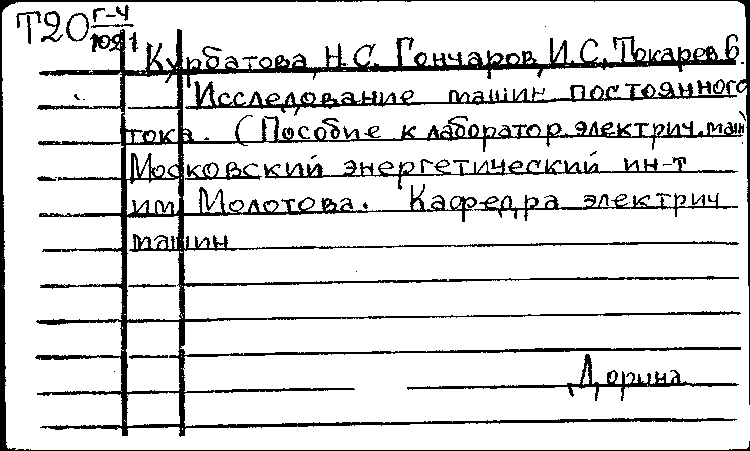 Т20 Г-4
1021
Курбатова, Н.С. Гончаров, И.С, Токарев Б
Исследование машин постоянного
тока. (Пособие к лаборатор. электрич. маш)
Московский энергетический ин-т
им Молотова. Кафедра электрич
машин
Дорина